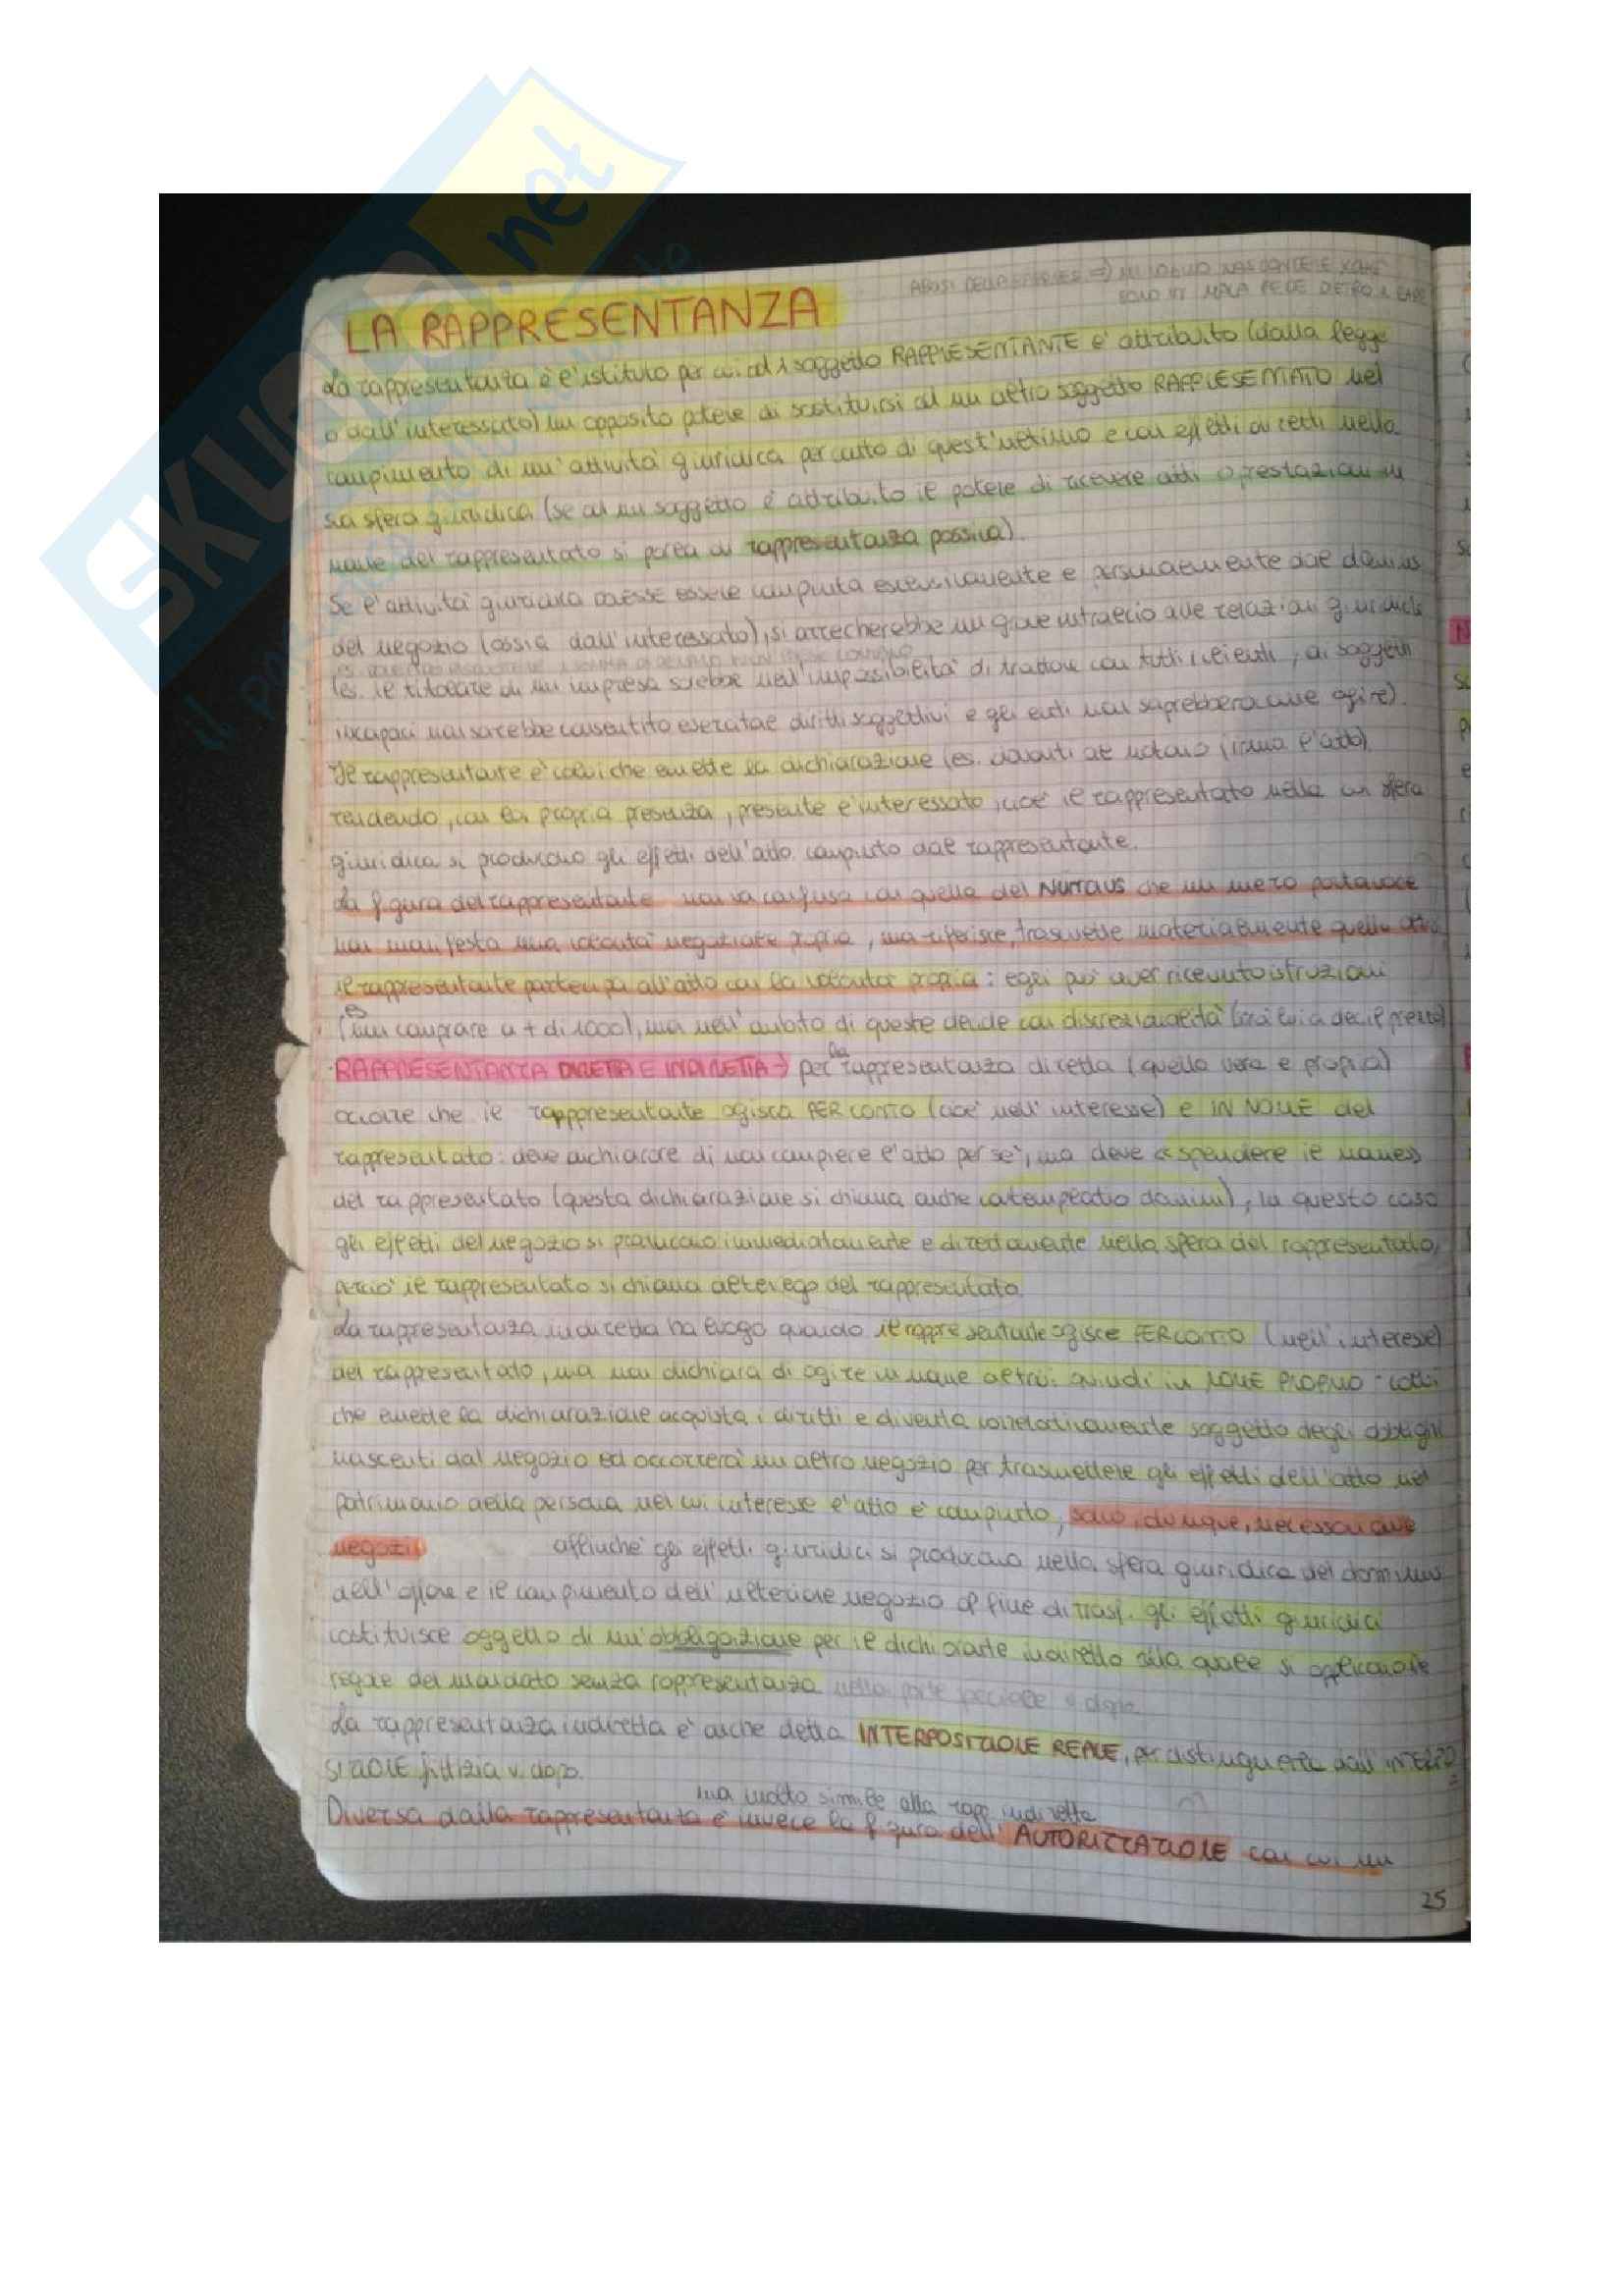 SKUOLA.net
LA RAPPRESENTANZA
La rappresentanza è l'istituto per cui ad 1 soggetto RAPPRESENTANTE e' attribuito (dalla legge
o dall'interessato) un apposito potere di sostituirsi ad un altro soggetto RAPPRESENTATO nel
compimento di un'attività giuridica per conto di quest'ultimo e con effetti diretti nella
sua sfera giuridica (se ad un soggetto è attribuito il potere di ricevere atti o prestazioni in
nome del rappresentato si parla di rappresentanza passiva).
Se l'attività giuridica dovesse essere compiuta esclusivamente e personalmente dal dominus
del negozio (ossia dall'interessato), si arrecherebbe un grave intralcio alle relazioni giuridiche
(es. il titolare di un impresa sarebbe nell'impossibilità di trattare con tutti i clienti, ai soggetti
incapaci non sarebbe consentito esercitare diritti soggettivi e gli enti non saprebbero come agire).
Il rappresentante e' colui che emette la dichiarazione (es. davanti al notaio firma l'atto)
rendendo, con la propria presenza, presente l'interessato, cioe' il rappresentato nella cui sfera
giuridica si producono gli effetti dell'atto compiuto dal rappresentante.
La figura del rappresentante non va confusa con quella del NUNTIUS che un mero portavoce
non manifesta una volontà negoziale propria, ma riferisce, trasmette materialmente quella altrui
il rappresentante partecipa all'atto con la volontà propria: egli può aver ricevuto istruzioni
(es non comprare a + di 1000), ma nell'ambito di queste decide con discrezionalità (sarà lui a dec. il prezzo)
RAPPRESENTANZA DIRETTA E INDIRETTA → per la rappresentanza diretta (quella vera e propria)
occorre che il rapppresentante agisca PER CONTO (cioe' nell'interesse) e IN NOME del
rappresentato: deve dichiarare di non compiere l'atto per se', ma deve «spendere il nome»
del rappresentato (questa dichiarazione si chiama anche contemplatio domini), in questo caso
gli effetti del negozio si producono immediatamente e direttamente nella sfera del rappresentato,
perciò il rappresentato si chiama alter ego del rappresentato.
La rappresentanza indiretta ha luogo quando il rappresentante agisce PER CONTO (nell'interesse)
del rappresentato, ma non dichiara di agire in nome altrui: quindi in NOME PROPRIO: colui
che emette la dichiarazione acquista i diritti e diventa correlativamente soggetto degli obblighi
nascenti dal negozio ed occorrerà un altro negozio per trasmettere gli effetti dell'atto nel
patrimonio della persona nel cui interesse l'atto è compiuto, sono, dunque, necessari due
negozi affinchè gli effetti giuridici si producano nella sfera giuridica del dominus
dell'affare e il compimento dell'ulteriore negozio al fine di trasf. gli effetti giuridici
costituisce oggetto di un'obbligazione per il dichiarante indiretto alla quale si applicano le
regole del mandato senza rappresentanza nella parte speciale v. dopo
La rappresentanza indiretta e' anche detta INTERPOSIZIONE REALE, per distinguerla dall'INTERPO
SIZIONE fittizia v. dopo.
ma molto simile alla rapp. indiretta
Diversa dalla rappresentanza è invece la figura dell'AUTORIZZAZIONE con cui un
25